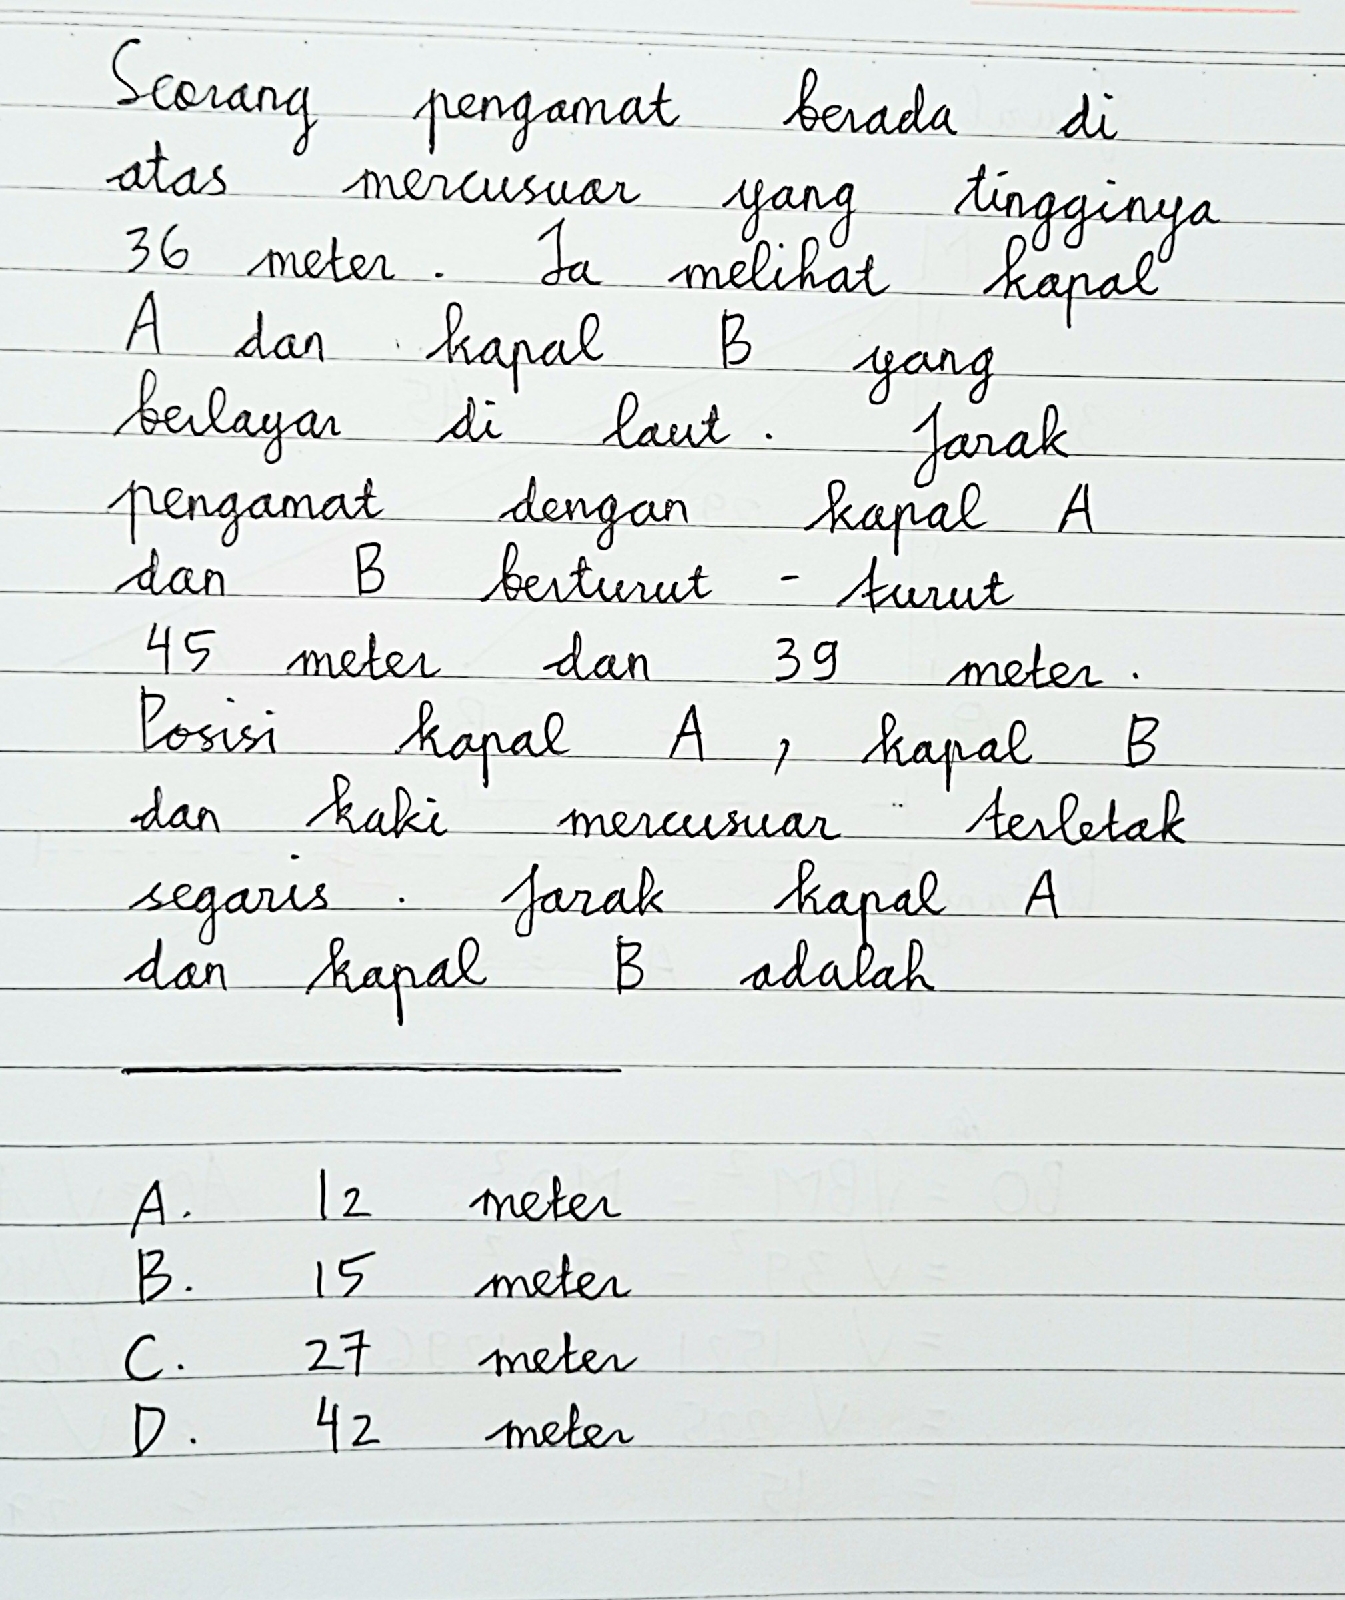 Seorang pengamat berada di
atas mercusuar yang tingginya
36 meter. Ia melihat kapal
A dan kapal B yang
berlayar di laut. Jarak
pengamat dengan kapal A
dan B berturut - turut
45 meter dan 39 meter.
Posisi kapal A, kapal B
dan kaki mercusuar terletak
segaris. Jarak kapal A
dan kapal B adalah
A. 12 meter
B. 15 meter
C. 27 meter
D. 42 meter